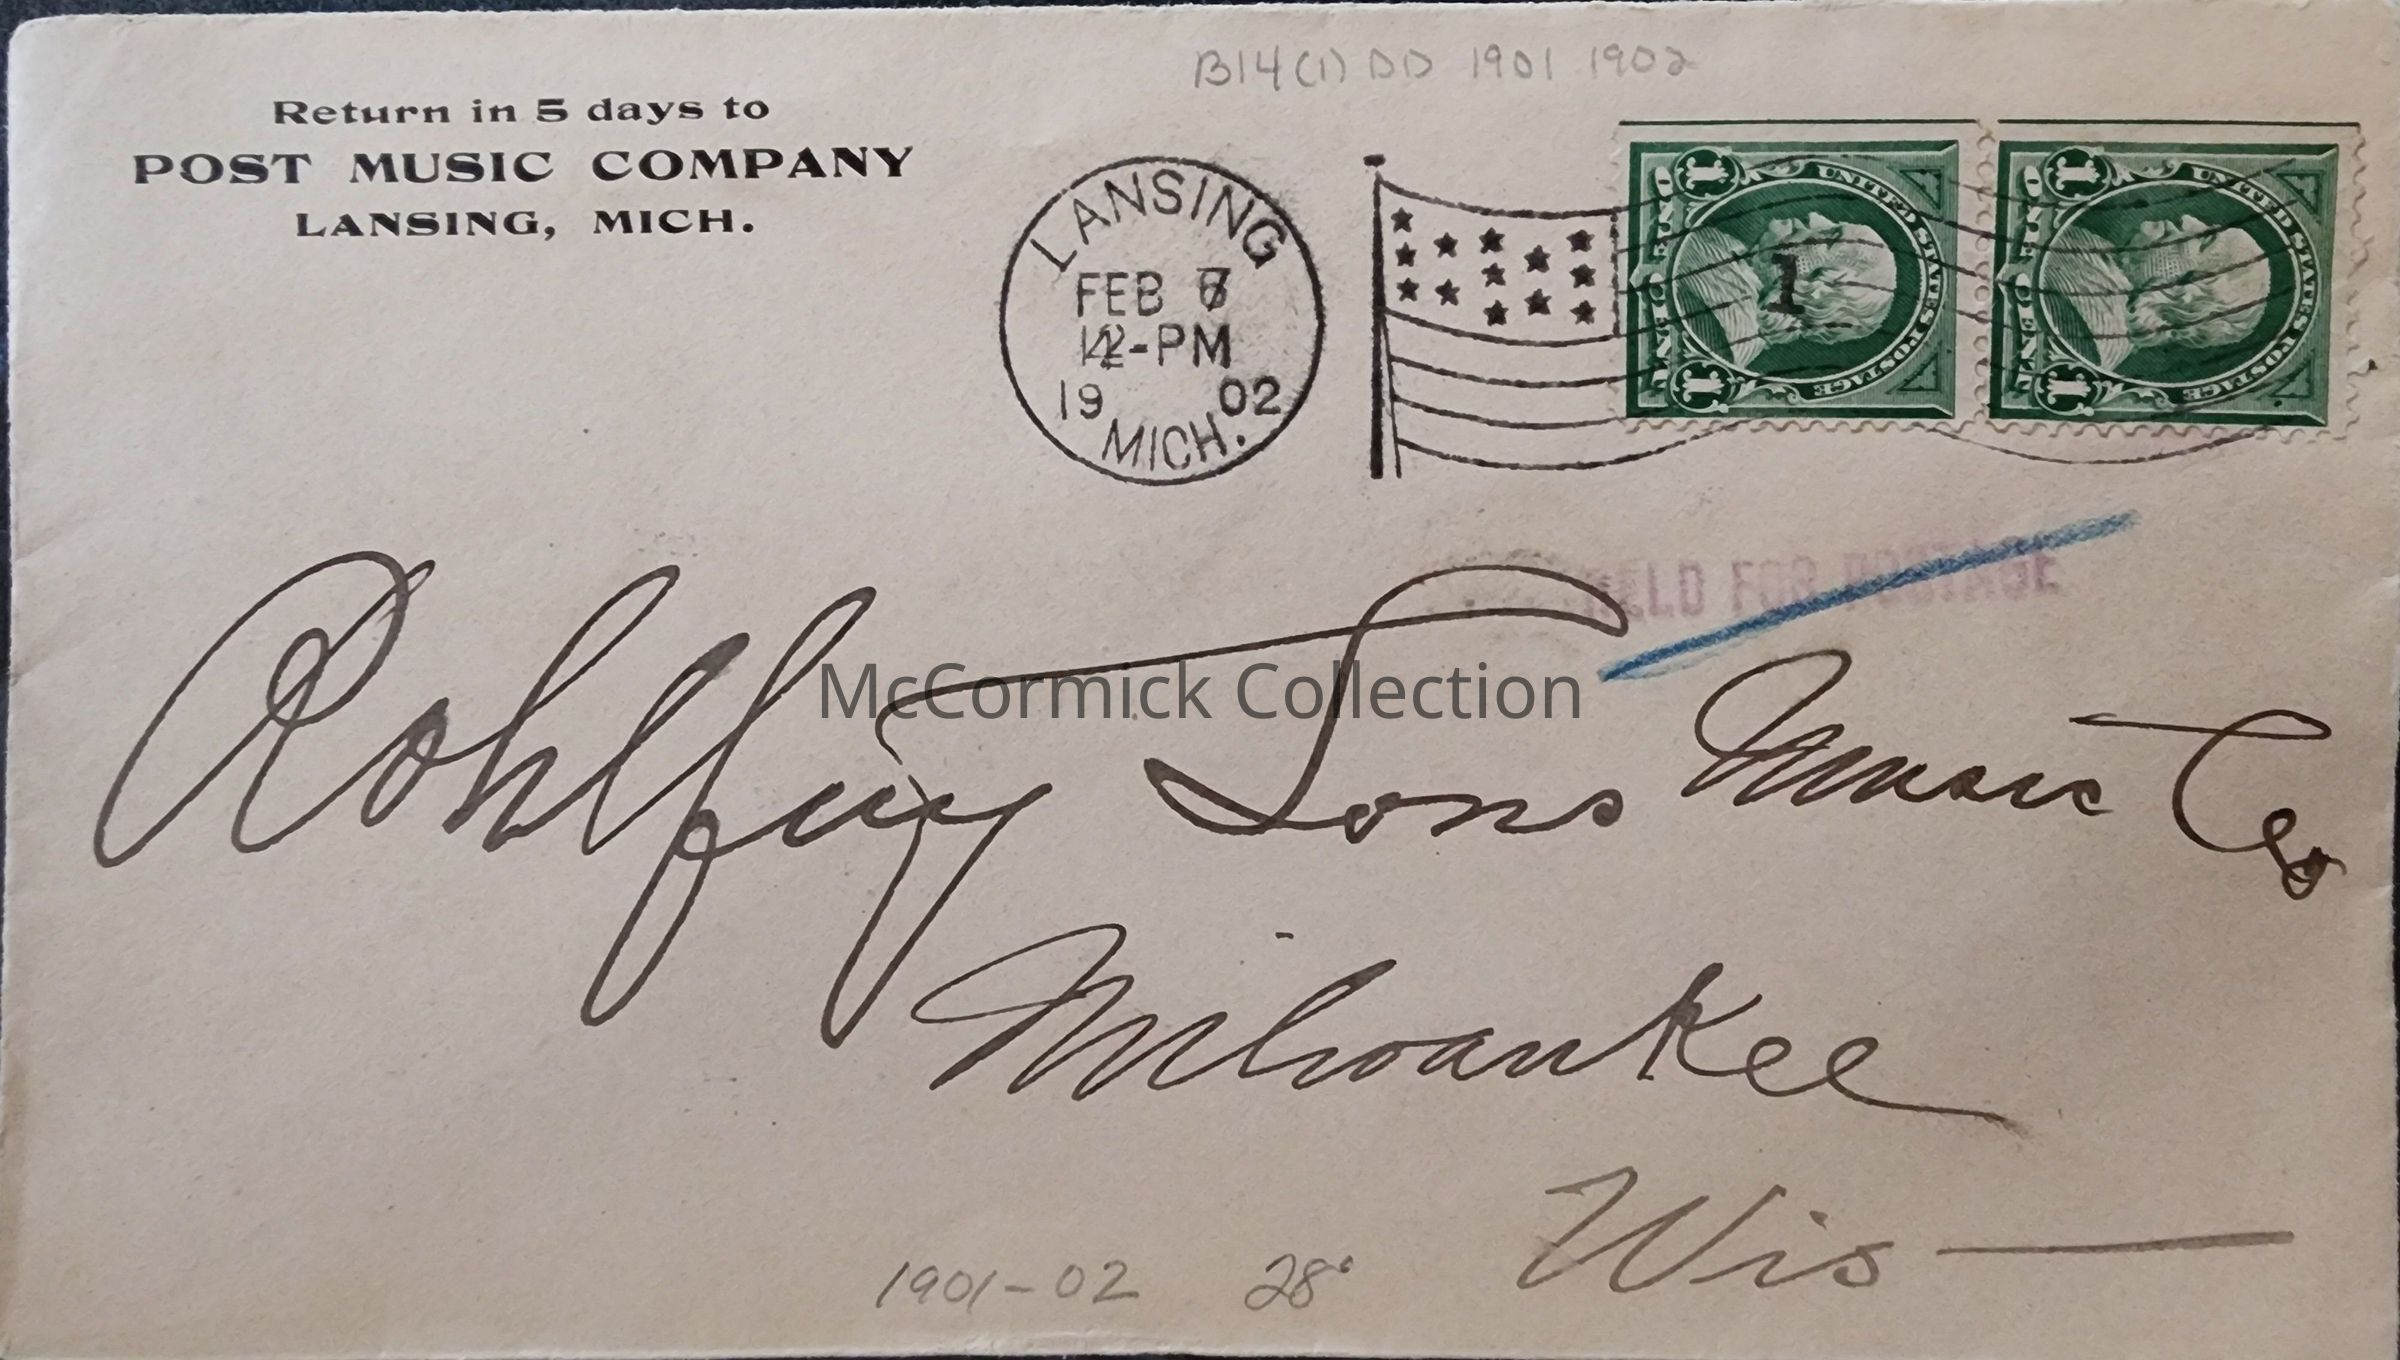 B14(1) DD 1901 1902
Return in 5 days to
POST MUSIC COMPANY
LANSING, MICH.
LANSING
FEB
-PM
19 02
MICH.
1
1 ONE CENT 1
UNITED STATES POSTAGE
1 ONE CENT 1
UNITED STATES POSTAGE
HELD FOR POSTAGE
McCormick Collection
Rohlfing Sons Music Co
Milwaukee
Wis
1901-02 28